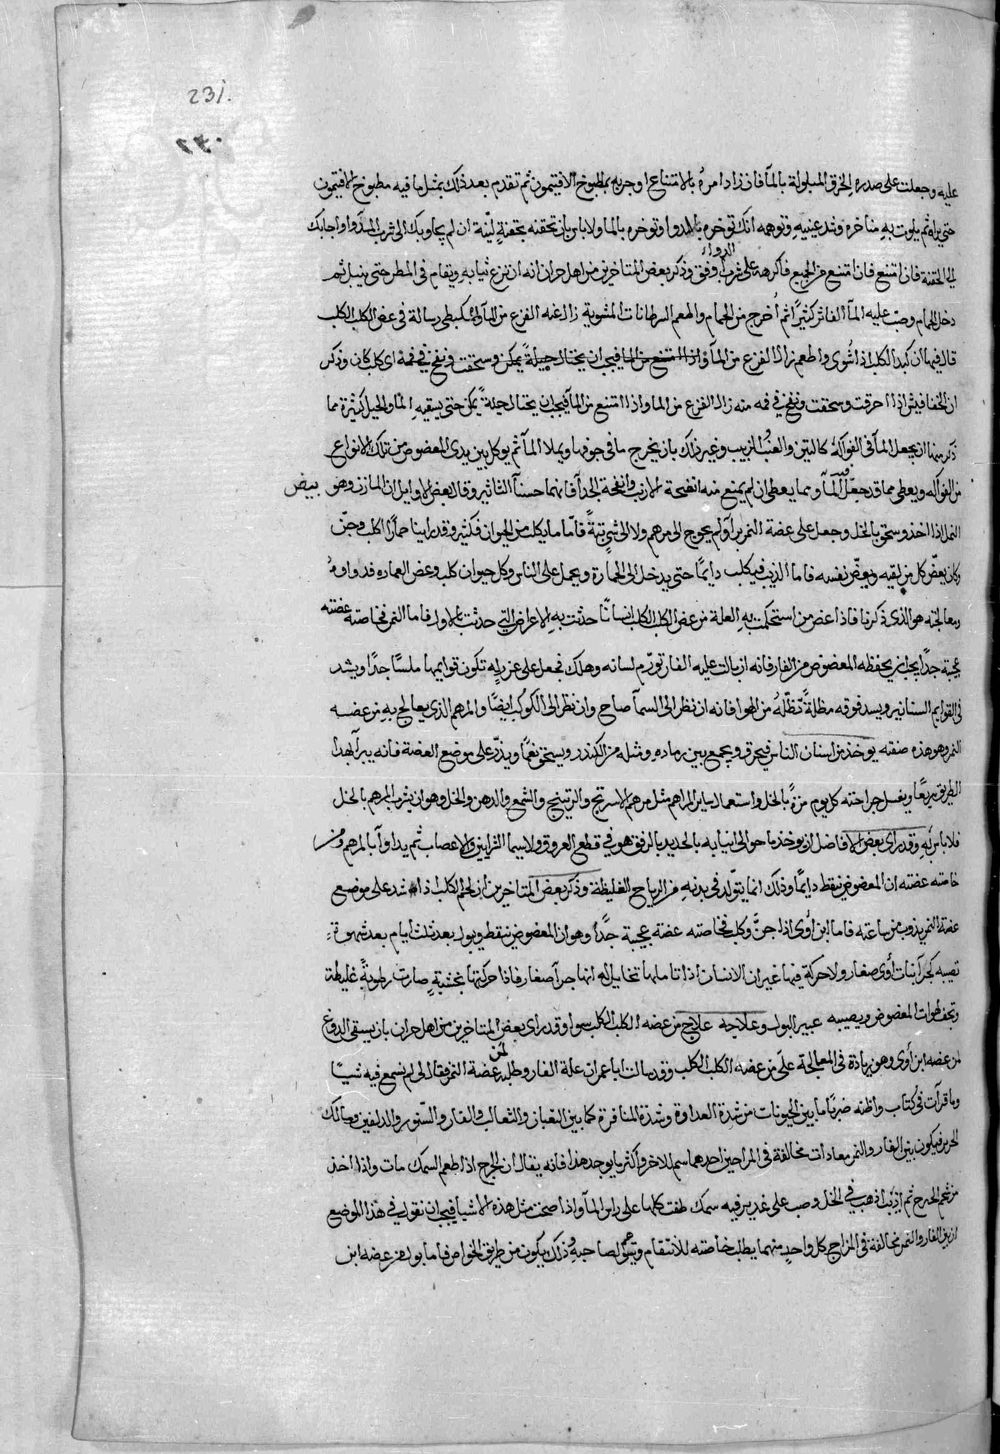 231.
٢٣٠
عليه وجعلت على صدره الخرق المبلولة بالمآ فان زاد امره بالامتناع اوجر به بمطبوخ الافتيمون ثم تقدم بعد ذلك بمثل ما فيه مطبوخ الافتيمون
حتى يراه ثم يلوث به مناخره وشد عينيه وتوهمه انك توخره بالدوا وتوخره بالما ولا باس بان تحقنه بحقنة لينة ان لم يجاوبك الى شرب الدوا واجابك
الى الحقنة فان امتنع فان امتنع عن الجميع فاكرهه على شرب الدواء وفق وذكر بعض المتاخرين من اهل حران انه ان نزع ثيابه ويقام في المطر حتى يبتل ثم
دخل الحمام وصب عليه المآ الفاتر كثيرًا ثم أخرج من الحمام واطعم السرطانات المشوية زال عنه الفزع من المآ ولاسكبطى رسالة في عض الكلب الكلب
قال فيها ان كبد الكلب اذا شوى واطعم زال الفزع من المآ واذا امتنع من الما فيجب ان يحتال حيلةً يمكن وسحقت ونفخ في فمه اى كلب كان وذكر
ان الخفافيش اذا احرقت وسحقت ونفخ في فمه منه زال الفزع من الما واذا امتنع من المآ فيجب ان يحتال حيلةً يمكن حتى يسقيه الما والحيل كثيرة مما
ذكر منها ان يجعل المآ في الفواكه كالتين والعنب الزبيب وغير ذلك بان يخرج ما في جوفها ويملا المآ ثم يوكل بين يدى المعضوض من تلك الانواع
من الفواكه ويعطى مما قد جعل فيه المآ ومما يعطى ان لم يمنع منه انفحة الارنب وانفحة الجدآ فانهما حسنآ التاثير وقال بعض الاوايل ان المازن وهو بيض
النمل اذا اخذ وسحق بالخل وجعل على عضة النمر برا ولم يحوج الى مرهم ولا الى شي بتةً فاما ما يكلب من الحيوان فكثير وقد راينا حمارًا كلب وجن
وكان يعض كل من لقيه ويعض نفسه فاما الذيب فيكلب دايمًا حتى يدخل الى الحمارة ويحمل على الناس وكل حيوان كلب وعض العماره فدواوه
ومعالجته هو الذى ذكرنا فاذا عض من استحكمت به العلة من عض الكلب الكلب انسانًا حدثت به الاعراض التى حدثت بالاول فاما النمر فخاصته عضته
عجيبة جدًا يجب ان يحفظه المعضوض من الفار فانه ان بالت عليه الفار تورم لسانه وهلك فجعل على عزرله تكون قوايمها ملسًا جدًا ويشد
في القوايم السنانير ويسد فوقه مظلةً تظله من الهوا فانه ان نظر الى السمآ صاح وان نظر الى الكوكب ايضًا والمرهم الذى يعالج به من عضه
النمر وهو هذه صفته يوخذ من اسنان الناس فيحرق ويجمع بين رماده ومثله من الكندر ويسحق نعمًا ويذر على موضع العضة فانه يبرآ بهذا
الطريق سريعًا ويغسل جراحته كل يوم مرةً بالخل واستعمال ساير المراهم مثل مرهم الاسرنج والريتينج والشمع والدهن والخل وهو ان يشرب المرهم بالخل
فلا باس به وقد راى بعض الافاضل ان يوخذ ما حوالى انيابه بالحديد بالرفق هو في قطع العروق ولا سيما الشرايين والاعصاب ثم يداوآ بالمرهم ومن
خاصته عضته ان المعضوض ينقط دايمًا وذلك انما يتولد في بدنه من الرياح الغليظة وذكر بعض المتاخرين ان لحم الكلب اذا شد على موضع
عضة النمر يذوب من ساعته فاما ابن أوى اذا جن وكلب فخاصته عضته عجيبة جدًا وهو ان المعضوض ينقط وبول بعد ثلث ايام بعد شهوة
تصيبه كجرآ بنات أوى صغار ولا حركة فيها غير ان الانسان اذا تاملها تخايل اليه انها جرآ صغار فاذا حركتها بخشبة صارت رطوبةً غليظة
وتجف لهوات المعضوض ويصيبه عسر البول وعلاجه علاج من عضه الكلب الكلب سوا وقد راى بعض المتاخرين من اهل حران بان يسقى الدوغ
لمن عضه ابن أوى وهو زيادة في المعالجة على من عضه الكلب الكلب وقد سالت ابا عمران علة الفار وطلبه لمن عضة النمر فقال لى لم نسمع فيه شيًا
وما قرآت في كتاب واظنه ضربًا ما بين الحيونات من شدة العداوة وشدة المنافرة كما بين الثعبان والثعالب والفار والسنور والدلفين ومالك
الحزين فيكون بين الفار والنمر معادات مخالفة في المزاحين احدهما سم للاخر واكثر ما يوجد هذا فانه يقال ان الخرج اذا طعم السمك مات واذا اخذ
من شحم الخدج ثم اذيب اذهب في الخل وصب على غدير فيه سمك طفت كلها على راس المآ واذا صحت مثل هذه الاشيا فيجب ان نقول في هذا الموضع
ان بين الفار والنمر مخالفة في المزاج كل واحد منهما يطلب خاصته للانتقام وتوى لصاحبه وذلك يكون من طريق الخواص فاما بول من عضه ابن